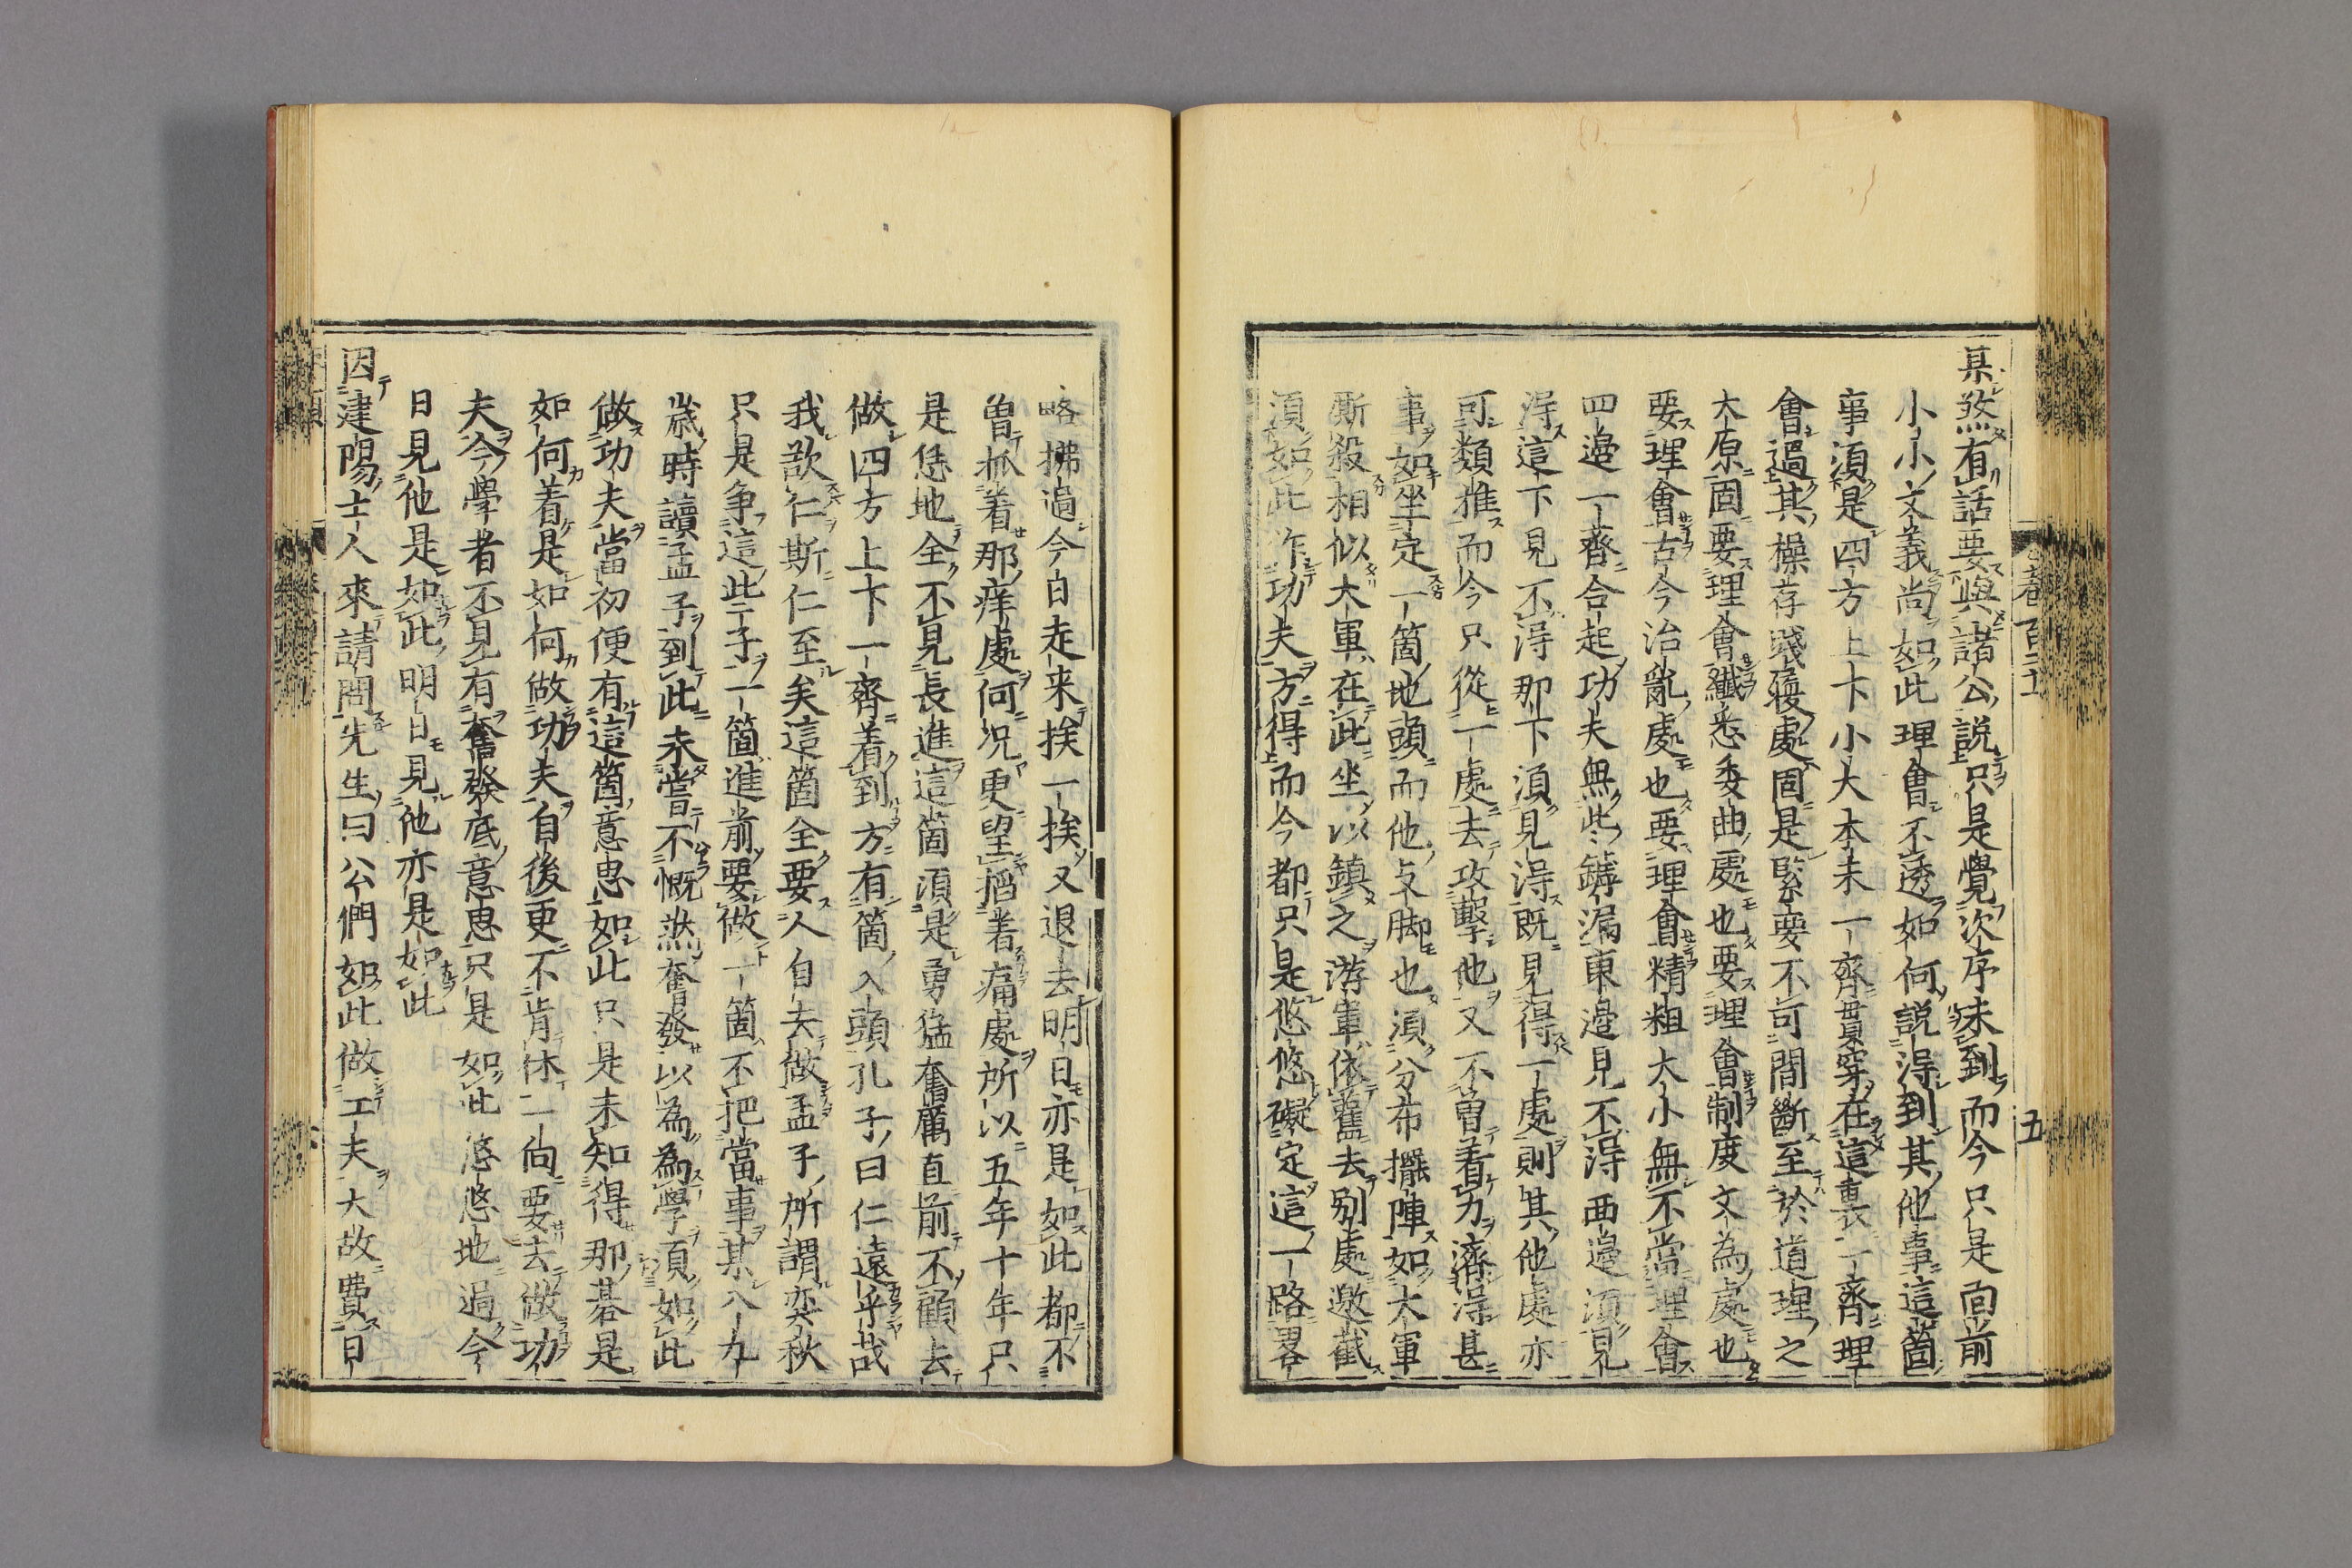 卷百二十一
五
某煞有話要與諸公説只是覺次序未到而今只是面前
小小文義尚如此理會不透如何説得到其他事這箇
事須是四方上下小大本末一齊貫穿在這裏一齊理
會過其操存踐履處固是緊要不可間斷至於道理之
大原固要理會纖悉委曲處也要理會制度文為處也
要理會古今治亂處也要理會精粗大小無不當理會
四邊一齊合起功夫無些罅漏東邊見不得西邊須見
得這下見不得那下須見得既見得一處則其他處亦
可類推而今只從一處去攻擊他又不曽着力濟得甚
事如坐定一箇地頭而他支脚也須分布擺陣如大軍
厮殺相似大軍在此坐以鎮之游軍依舊去别處邀截
須如此作功夫方得而今都只是悠悠礙定這一路畧
略拂過今日走来挨一挨又退去明日亦是如此都不
曽抓着那痒處何况更望搯着痛處所以五年十年只
是恁地全不見長進這箇須是勇猛奮厲直前不顧去
做四方上下一齊着到方有箇入頭孔子曰仁遠乎哉
我欲仁斯仁至矣這箇全要人自去做孟子所謂奕秋
只是争這些子一箇進前要做一箇不把當事某八九
歲時讀孟子到此未嘗不慨然奮發以為為學須如此
做功夫當初便有這箇意思如此只是未知得那碁是
如何着是如何做功夫自後更不肯休一向要去做功
夫今學者不見有奮發底意思只是如此悠悠地過今
日見他是如此明日見他亦是如此
因建陽士人來請問先生曰公們如此做工夫大故費日